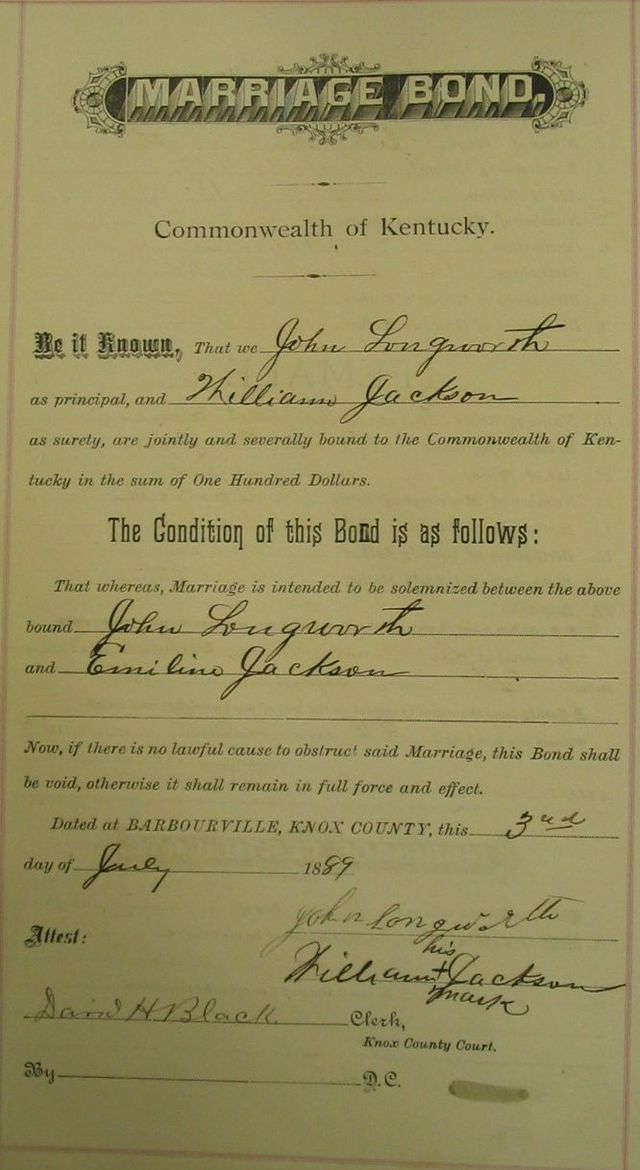 MARRIAGE BOND.
Commonwealth of Kentucky.
Be it Known, That we John Longworth
as principal, and William Jackson
as surety, are jointly and severally bound to the Commonwealth of Ken-
tucky in the sum of One Hundred Dollars.
The Condition of this Bond is as follows:
That whereas, Marriage is intended to be solemnized between the above
bound John Longworth
and Emiline Jackson
Now, if there is no lawful cause to obstruct said Marriage, this Bond shall
be void, otherwise it shall remain in full force and effect.
Dated at BARBOURVILLE, KNOX COUNTY, this 3rd
day of July 1889
John Longworth
Attest:
his
William + Jackson
mark
David H Black Clerk,
Knox County Court.
By D.C.